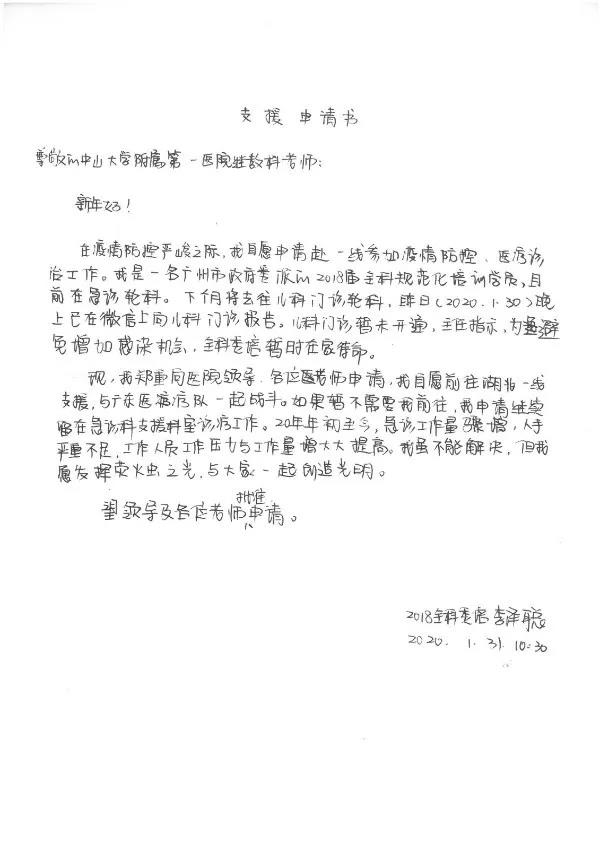 支援申请书
尊敬的中山大学附属第一医院继教科老师：
新年好！
在疫情防控严峻之际，我自愿申请赴一线参加疫情防控、医疗诊
治工作。我是一名广州市政府委派的2018届全科规范化培训学员，目
前在急诊轮科。下个月将去往儿科门诊轮科，昨日（2020.1.30）晚
上已在微信上向儿科门诊报告。儿科门诊暂未开通，主任指示，为避
免增加感染机会，全科委培暂时在家待命。
现，我郑重向医院领导、各位老师申请，我自愿前往湖北一线
支援，与广东医疗队一起战斗。如果暂不需要我前往，我申请继续
留在急诊科支援科室诊疗工作。20年年初至今，急诊工作量骤增，人手
严重不足，工作人员工作压力与工作量增大大提高。我虽不能解决，但我
愿发挥萤火虫之光，与大家一起创造光明。
望领导及各位老师批准申请。
2018全科委培 李泽聪
2020.1.31. 10:30